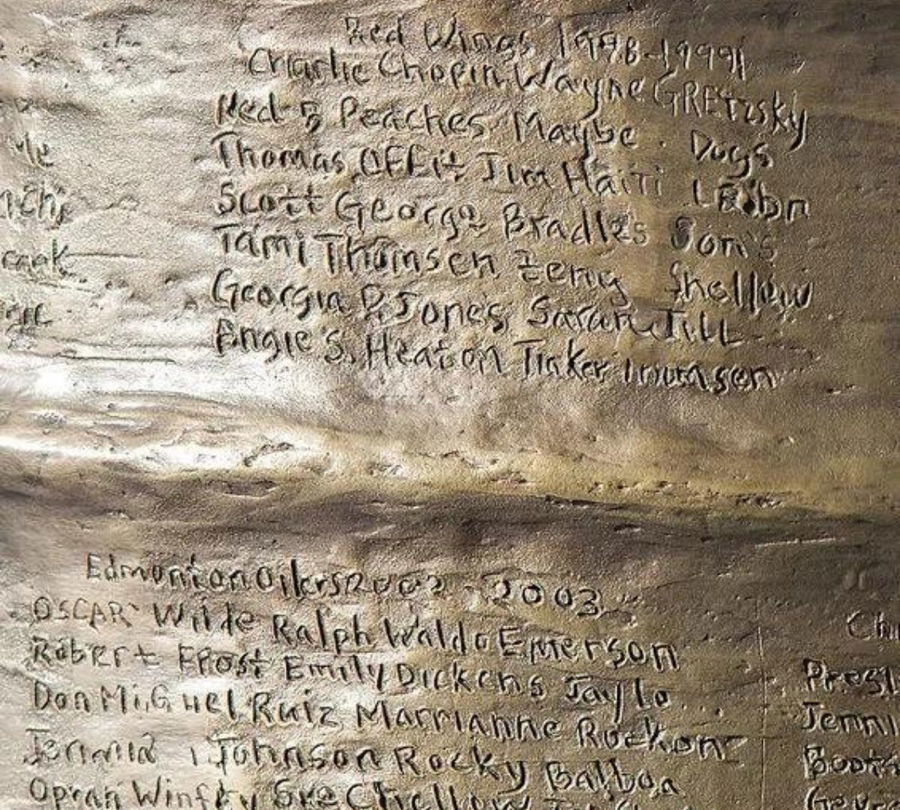 Red Wings 1998-1999
Charlie Chopin Wayne GREtzsky
Red & Peaches Maybe. Dogs
Thomas OFFit Jim Haiti
Scott George Bradles Son's
Tami Thomsen Zeng Shellow
Georgia P. Jones Sarah JILL
Angie S. Heaton Tinker Thomsen
Me
Edmonton Oilers 2002 - 2003
OSCAR Wilde Ralph Waldo Emerson
Robert Frost Emily Dickens Jaylo
Don MiGuel Ruiz Marrianne Rockon
Johnson Rocky Balboa
Oprah Winfry Sve Chellow
Ch
Presl
Jenni
Boots